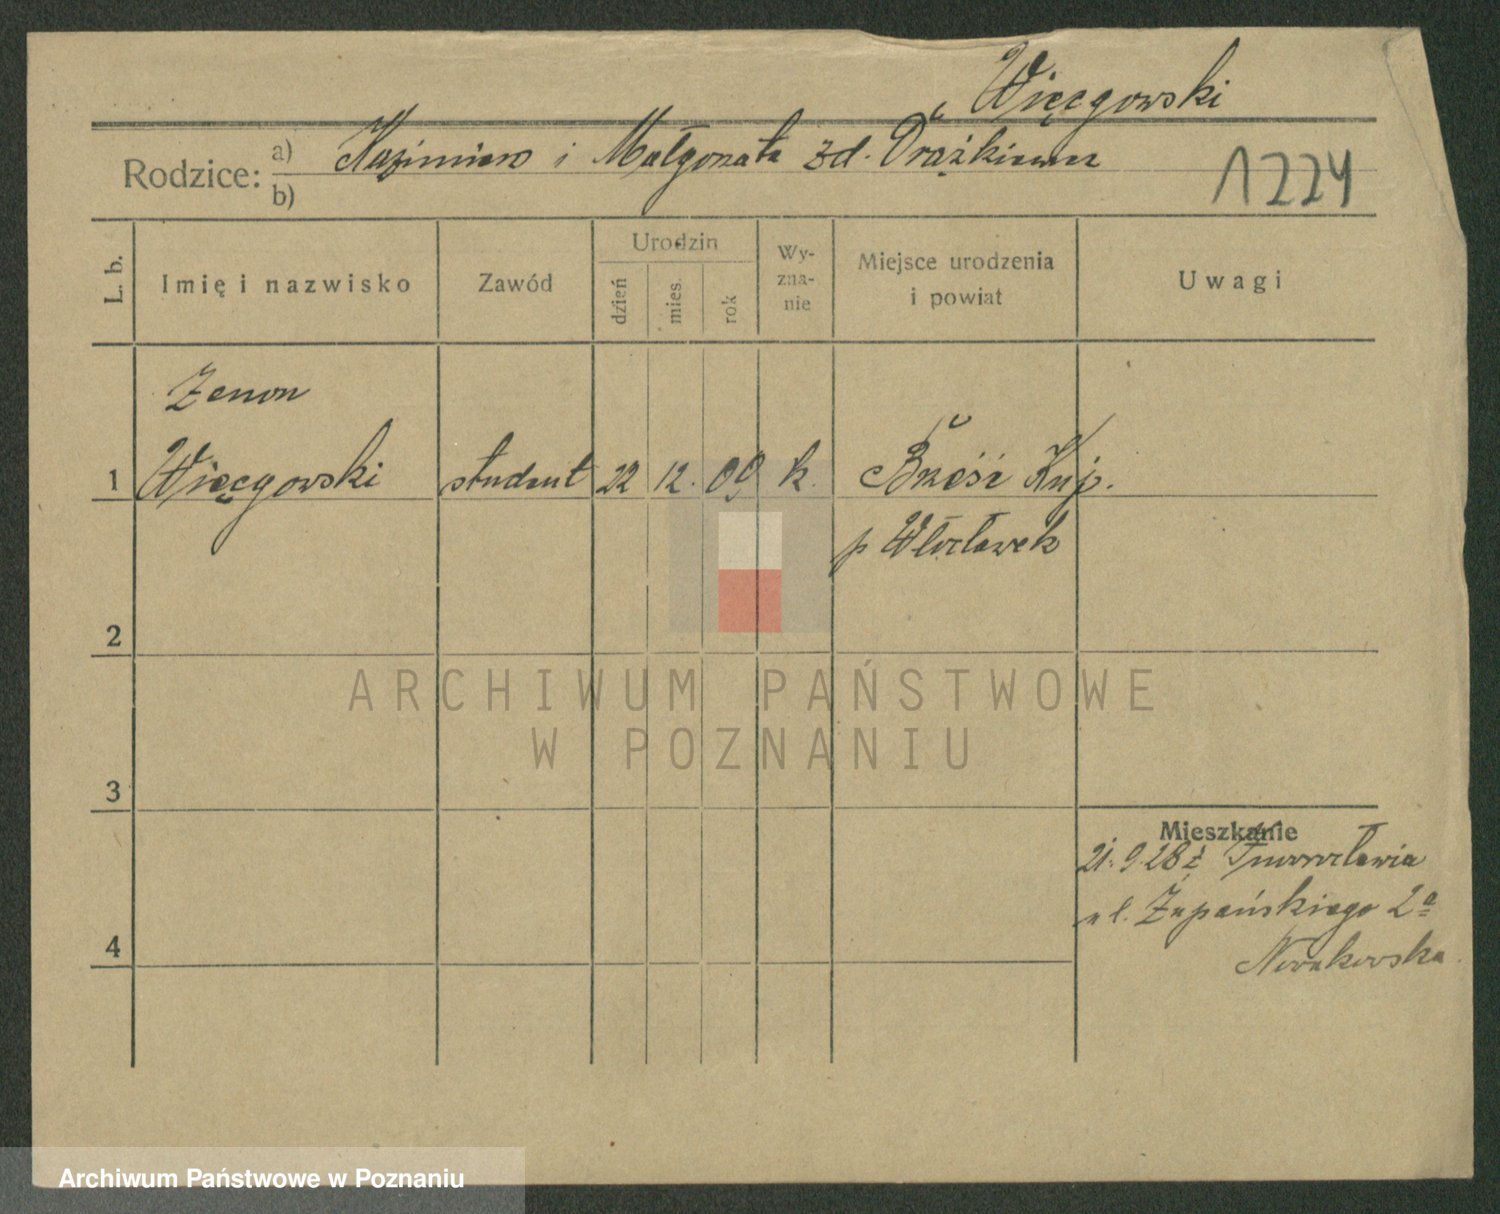 Więcgowski
Rodzice: a) Kazimierz i Małgorzata zd. Drążkiewicz
b)
1224
L. b. Imię i nazwisko Zawód Urodzin dzień mies. rok Wyznanie Miejsce urodzenia i powiat Uwagi
Zenon
1 Więcgowski student 22 12. 09 k. Brześć Kuj.
p Włocławek
2
3
4
Mieszkanie
21. 9. 28 z Inowrocławia
ul. Żupańskiego 2a
Nowakowska
ARCHIWUM PAŃSTWOWE
W POZNANIU
Archiwum Państwowe w Poznaniu